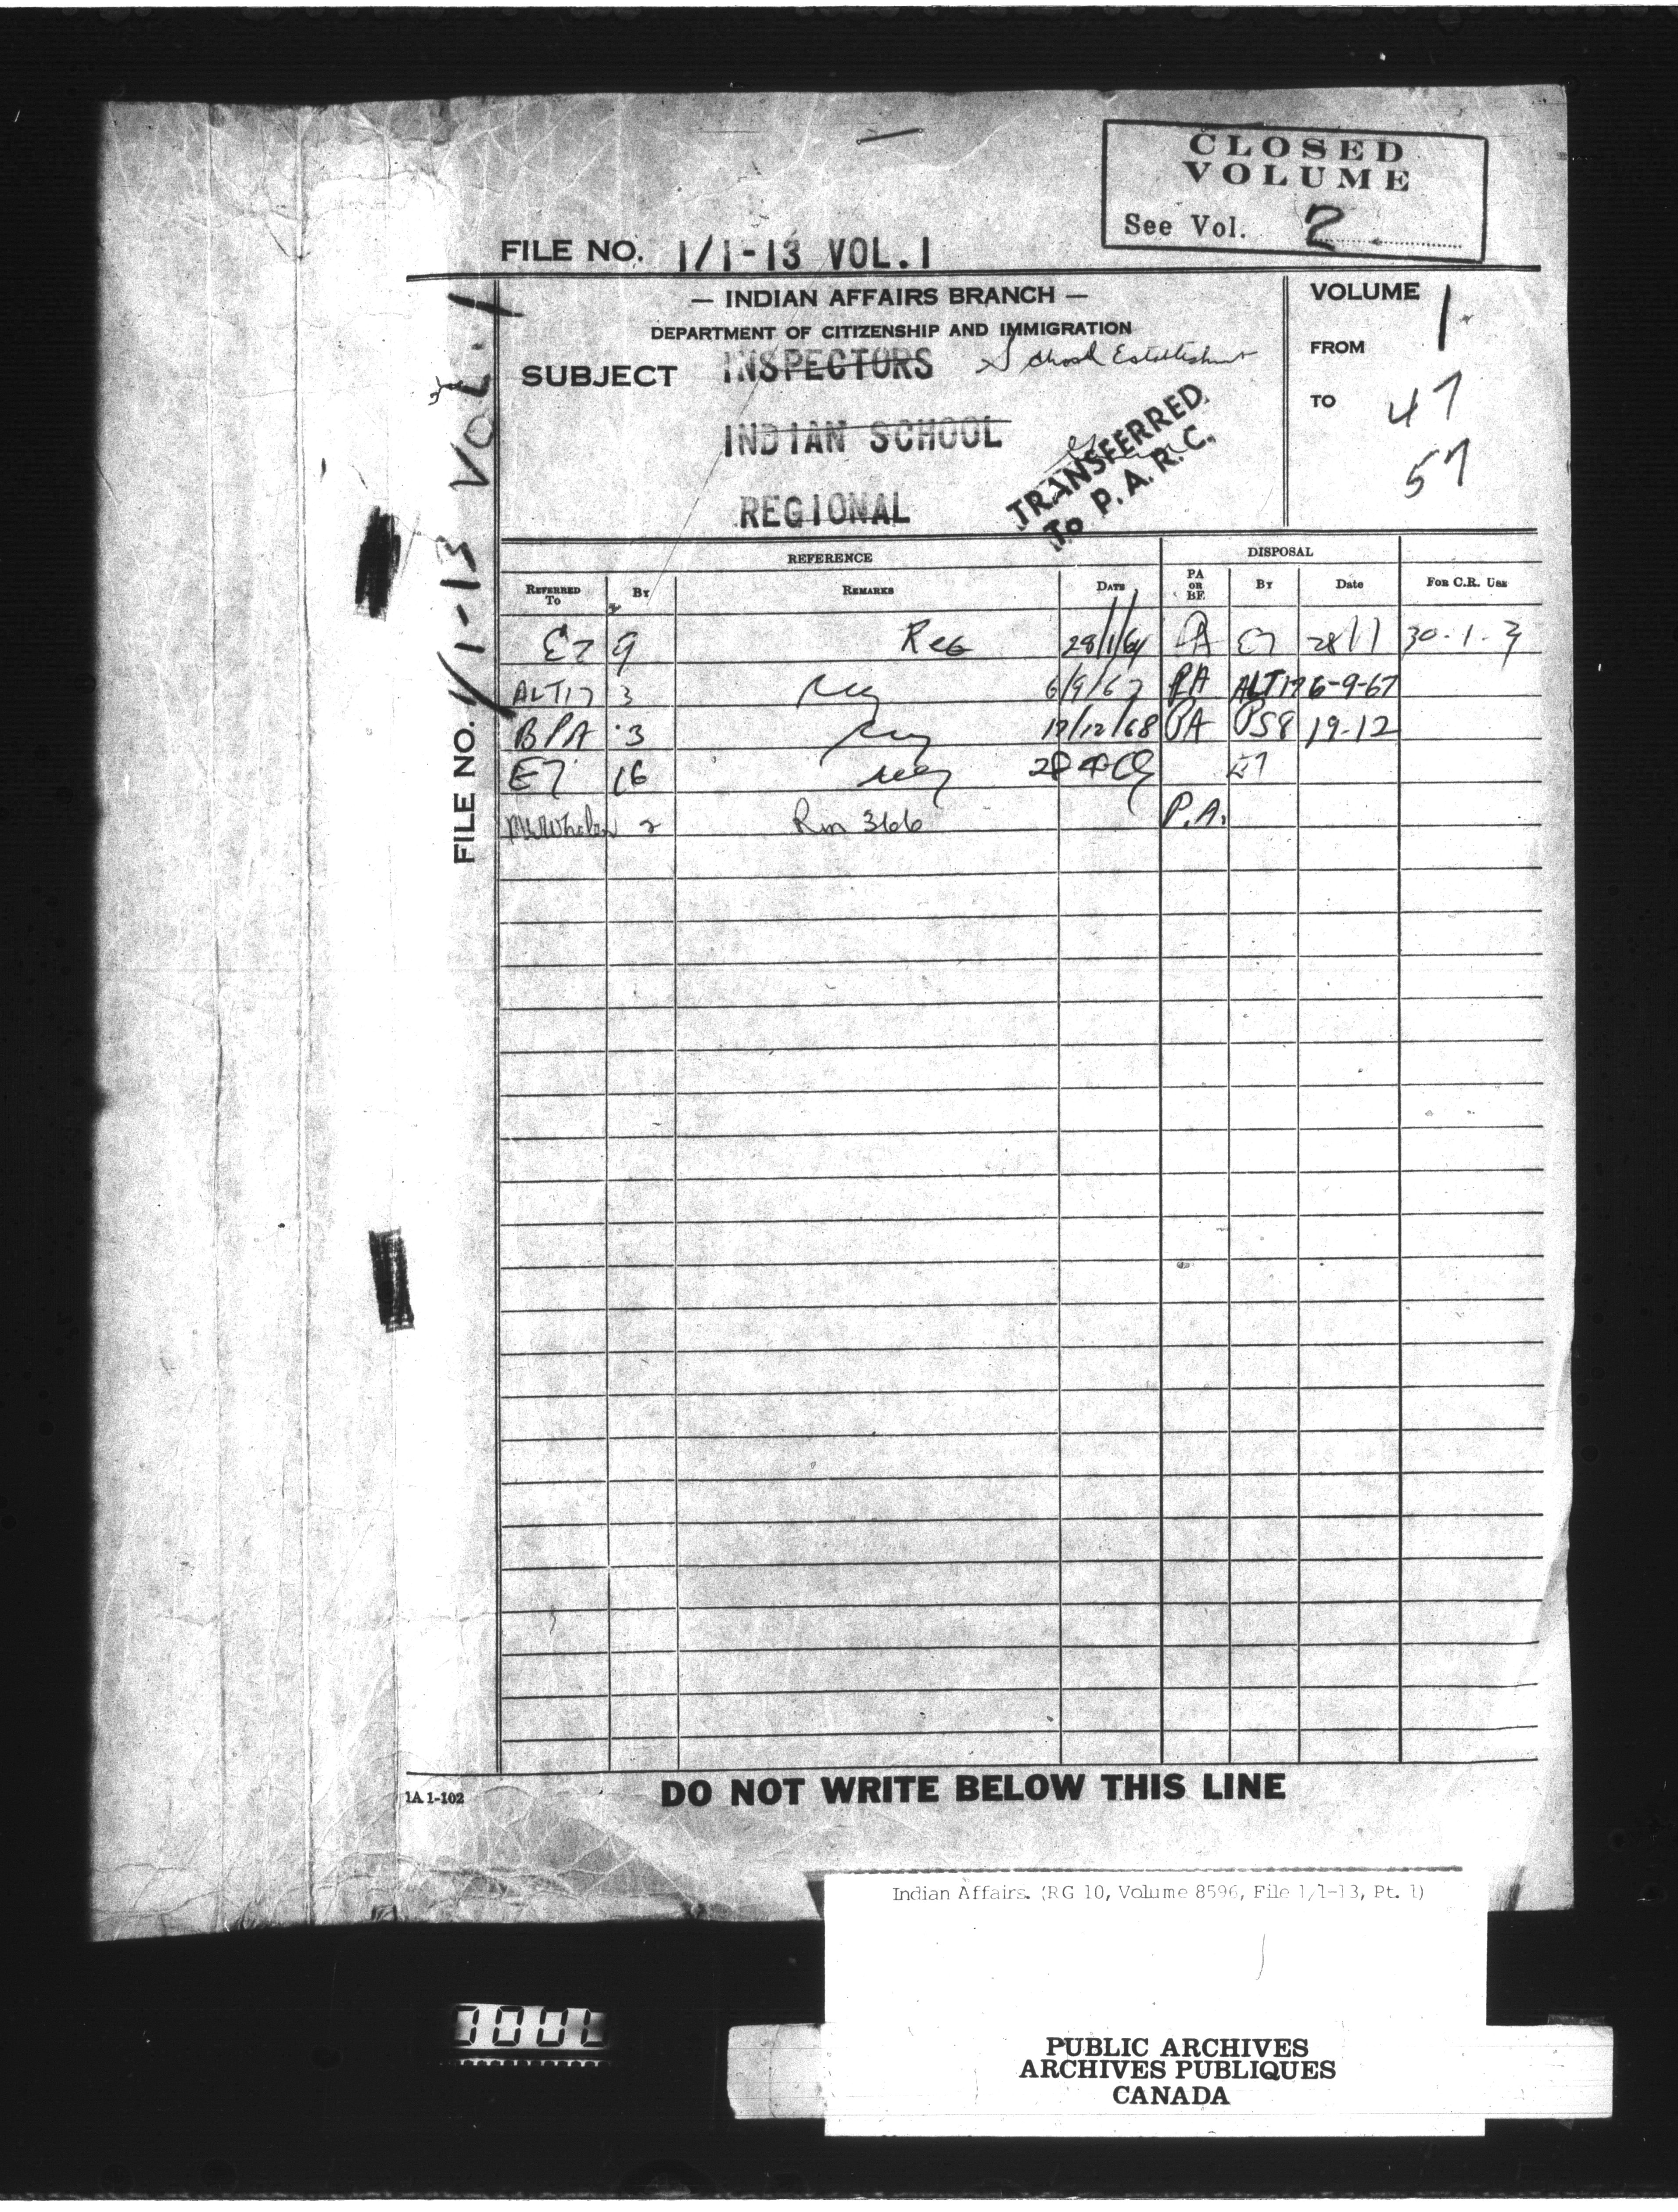 CLOSED
VOLUME
See Vol. 2
FILE NO. 1/1-13 VOL. 1
— INDIAN AFFAIRS BRANCH —
DEPARTMENT OF CITIZENSHIP AND IMMIGRATION
SUBJECT INSPECTORS School Establishment
INDIAN SCHOOL
REGIONAL
TRANSFERRED
To P.A.R.C.
VOLUME 1
FROM
TO 47
57
FILE NO. 1/1-13 VOL. 1
REFERENCE DISPOSAL
REFERRED TO BY REMARKS DATE PA OR BF. BY Date FOR C.R. USE
E7 9 Reg 28/1/64 PA E7 28/1 30.1.
ALT17 3 Reg 6/9/67 PA ALT17 6-9-67
BPA 3 Reg 19/12/68 PA PS8 19-12
E7 16 Reg E7
Mr Whalen 2 Rm 366 P.A.
1A 1-102
DO NOT WRITE BELOW THIS LINE
Indian Affairs. (RG 10, Volume 8596, File 1/1-13, Pt. 1)
PUBLIC ARCHIVES
ARCHIVES PUBLIQUES
CANADA